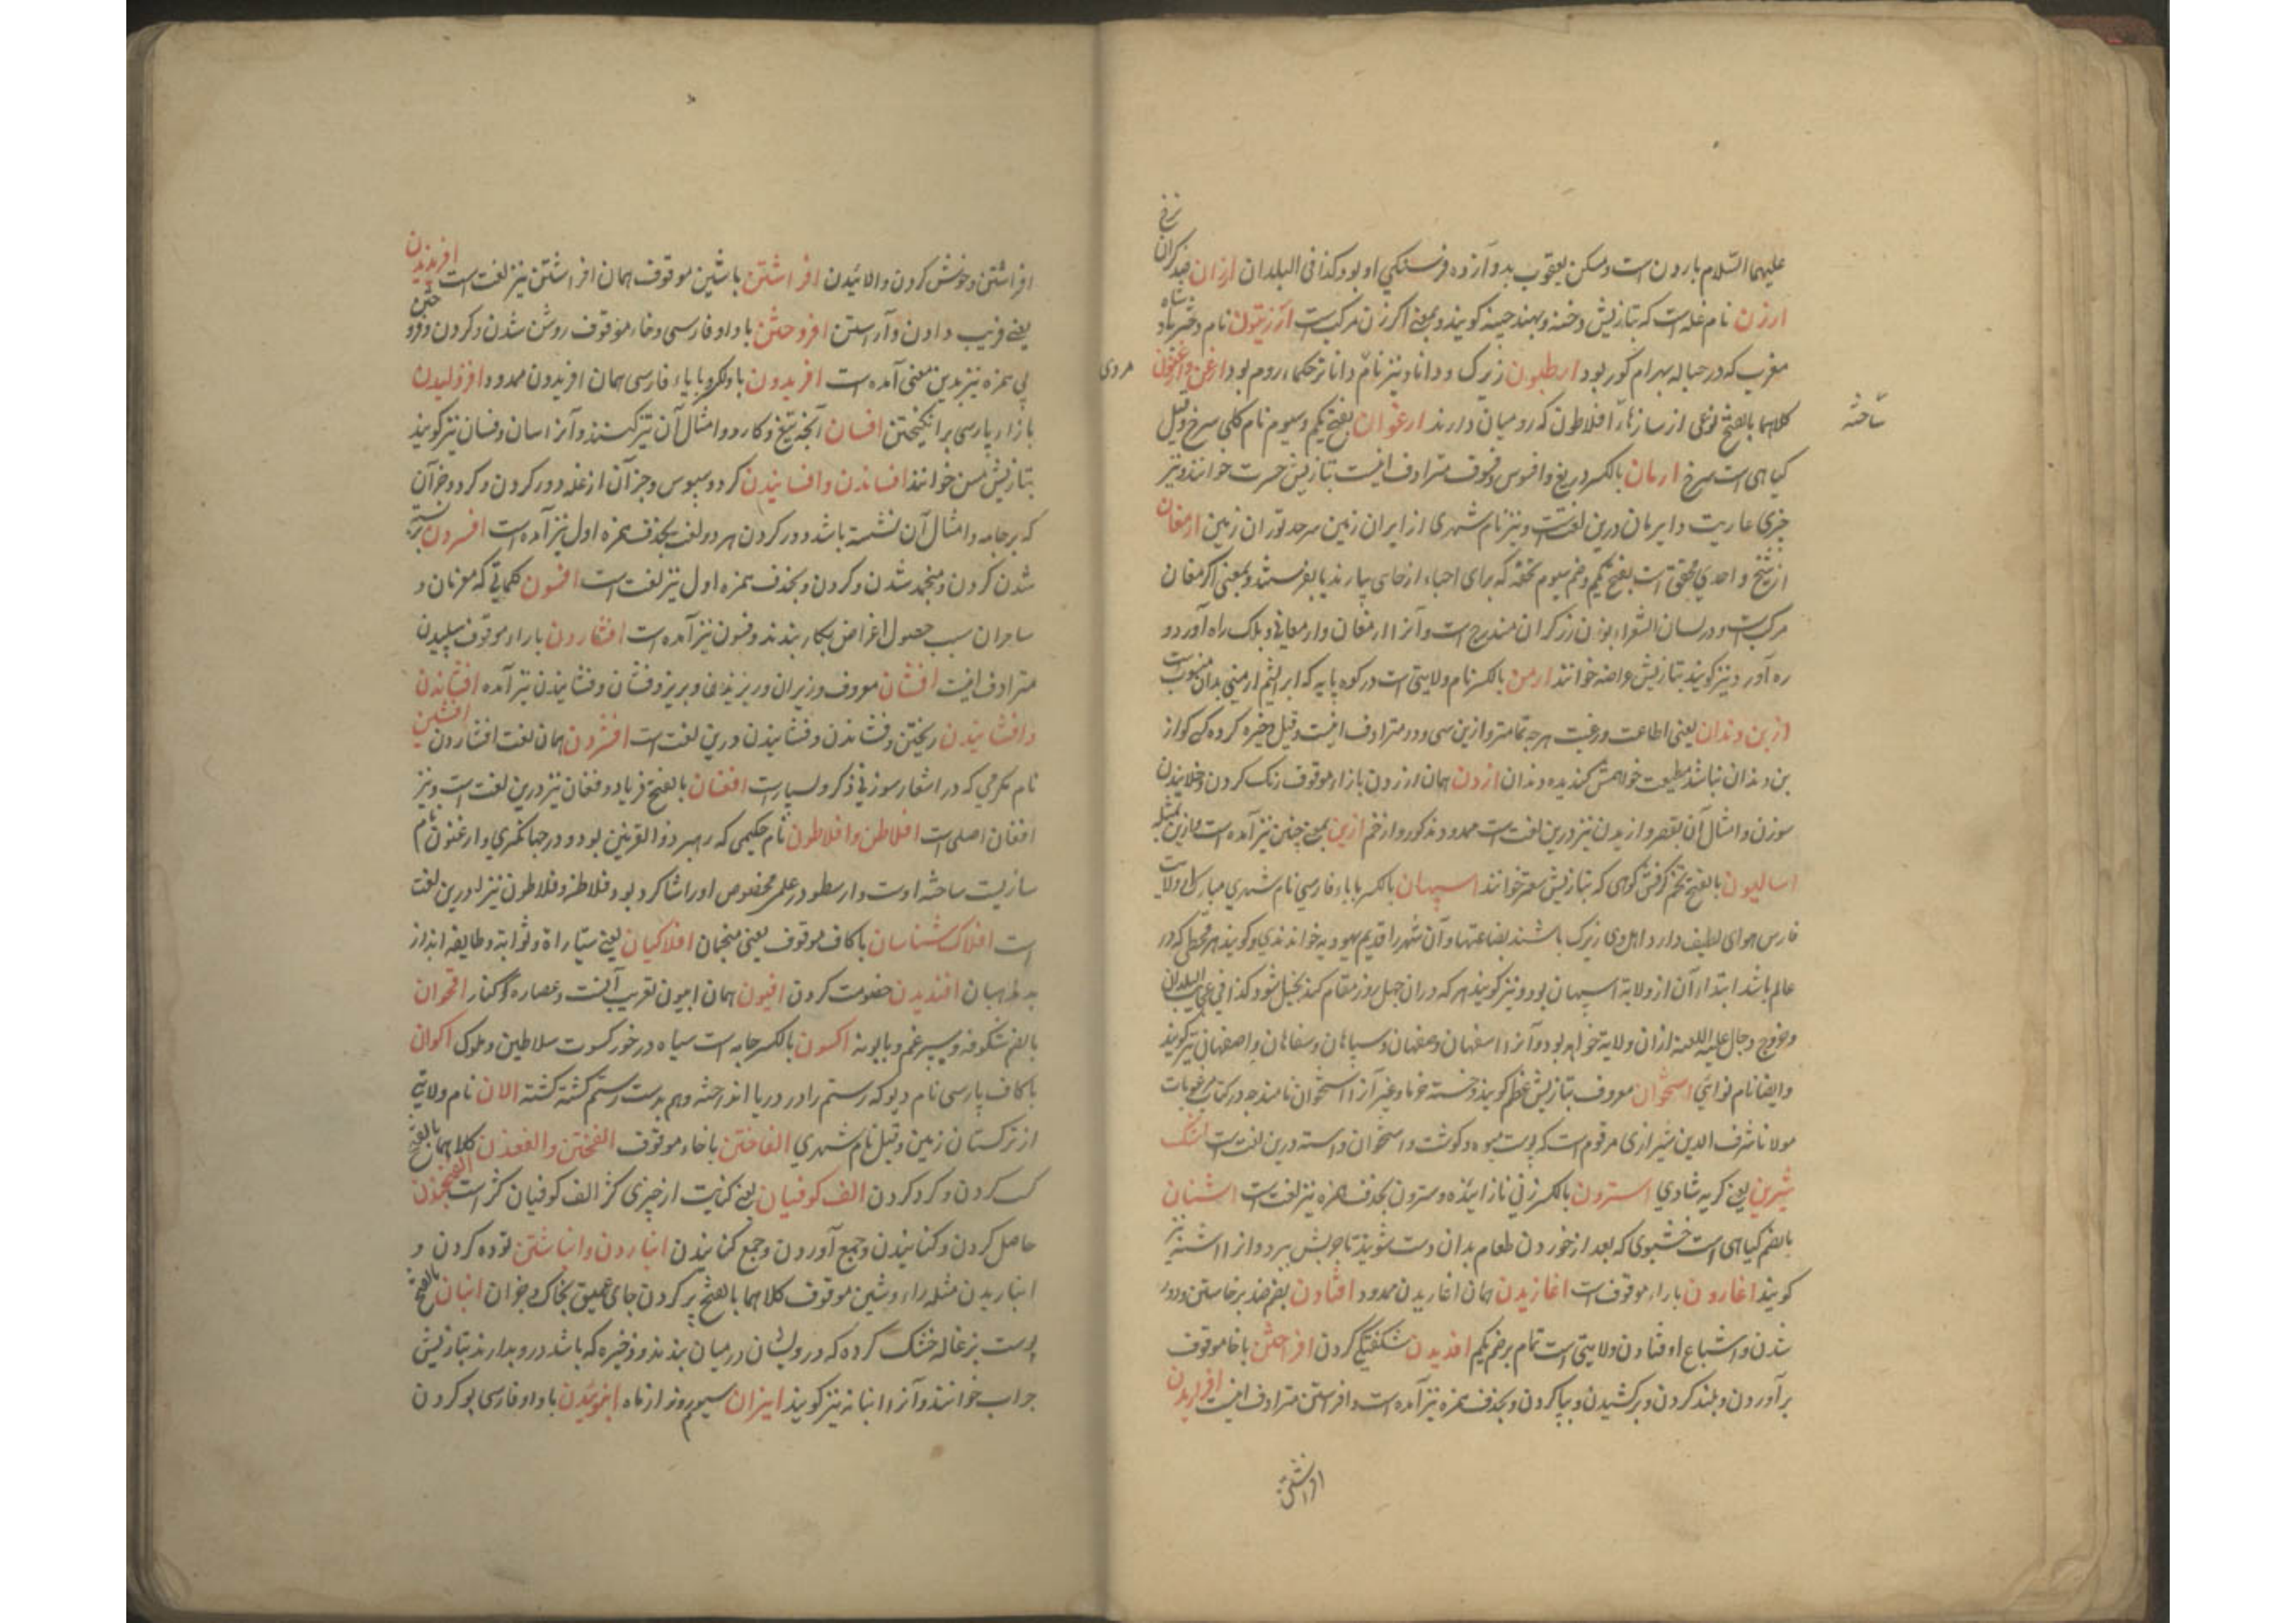 نرخ
علیهما السّلام بارون است و مسکن یعقوب بدوازده فرسنکی او بود کذا فی البلدان ارزان ضد کران
ارزن نام غله است که بتازیش دخنه و بهند چینه کویند و بمعنی اکر زن مرکب است آرزیتون نام دختر شاه
مغرب که در حباله بهرام کور بود ارطیون زیرک و دانا و نیز نام دانا تر حکماء روم بود ارغن و ارغنون
کلاهما بالفتح نوعی از سازهاء افلاطون که رومیان دارند ارغوان بفتح یکم و سیوم نام کلی سرخ و قیل
ساخته
کیاهی است سرخ ارمان بالکسر دریغ و افسوس و فسوف مترادف اینست بتازیش حسرت خوانند و نیز
چیزی عاریت و ایرمان درین لغتست و نیز نام شهری از ایران زمین سرحد توران زمین ارمغان
از شیخ واحدی محقق است بفتح یکم و ضم سیوم تحفه که برای احباء از جای بیارند یا بفرستند و بمعنی اکر مغان
مرکب است و در لسان الشعراء بوزن زرکران مندرج است و آنرا ارمغان و ارمغانی و بلک راه آورد و
ره آورد نیز کویند بتازیش عراضه خوانند ارمن بالکسر نام ولایتی است در کوه پایه که ابریشم ارمنی بدان منسوب است
از بن دندان یعنی اطاعت و رغبت هرچه تمامتر و ازین سی و دو مترادف اینست و قیل ذخیره کرده که کو از
بن دندان نباشد مطیعت خواهمش کندیده دندان ازدن همان ارزدن بازاء موقوف رنک کردن و خلانیدن
سوزن و امثال آن بقصر و ازیدن نیز درین لغت است ممدود مذکور و از خم ازین بمعنی چنین نیز آمده است و ازین مثله
اسالیون بالفتح تخم کرفش کوهی که بتازیش سعتر خوانند اسپهان بالکسر با باء فارسی نام شهری مبارک از ولایت
فارس هوای لطیف دارد اهل وی زیرک باشند بضاعتها و آن شهر را قدیم یهودیه خواندندی و کویند هر قحطی که در
عالم باشد ابتداء آن از ولایة اسپهان بود و نیز کویند هر که در ان چهل روز مقام کند بخیل شود کذا فی عجائب البلدان
و خروج دجال علیه اللعنه ازان ولایة خواهد بود و آنرا اسفهان و صفهان و سپاهان و سفاهان و اصفهان نیز کویند
و ایضا نام نوائی استخوان معروف بتازیش عظم کویند و خسته خرما و غیر آنرا استخوان نامند چه در کتاب مرغوبات
مولانا شرف الدین شیرازی مرقوم است که پوست میوه و کوشت و استخوان و استه درین لغت است اشک
شیرین یعنی کریه شادی استرون بالکسر زنی نازاینده و سترون بحذف همزه نیز لغت است اشنان
بالضم کیاهی است خشبوی که بعد از خوردن طعام بدان دست شویند تا چربش ببرد و انرا اشنه نیز
کویند اغاردن باراء موقوف است اغاریدن همان اغاریدن ممدود افتادن بضم ضد برخاستن و دور
شدن و اشباع اوفتادن ولایتی است تمام بر ضم یکم افدیدن شکفتکی کردن افراختن باخا موقوف
برآوردن و بلند کردن و برکشیدن و بپا کردن و بحذف همزه نیز آمده است و افراستن مترادف اینست افرازیدن
افراشتن
افراشتن و خوش کردن و الائیدن افراشتن باشین موقوف همان افراشتن نیز لغت است افرندیدن
یعنی فریب دادن و آراستن افروختن با واو فارسی و خاء موقوف روشن شدن و کردن و فروختن
بی همزه نیز بدین معنی آمده است افریدون با واو کروبا یاء فارسی همان افریدون ممدود افژولیدن
با زاء پارسی برانکیختن افسان آنچه تیغ و کارد و امثال آن تیز کنند و آنرا سان و فسان نیز کویند
بتازیش مسن خوانند افساندن و افسانیدن کرد و سبوس و جز آن از غله دور کردن و کرد و جز آن
که بر جامه و امثال آن نشسته باشد دور کردن هر دو لغت بحذف همزه اول نیز آمده است افسردن بسته
شدن کردن و منجمد شدن و کردن و بحذف همزه اول نیز لغت است افسون کلماتی که معزمان و
ساحران سبب حصول اغراض بکار بندند و فسون نیز آمده است افشاردن باراء موقوف سپلیدن
مترادف اینست افشان معروف و زیران و ریزیدنی و بریز و فشان و فشانیدن نیز آمده افشاندن
و افشانیدن ریختن و فشاندن و فشانیدن درین لغت است افشردن همان لغت افشاردن افشین
نام مکرمی که در اشعار سوزنی ذکر او بسیار است افغان بالفتح فریاد و فغان نیز درین لغت است و نیز
افغان اصلی است افلاطن و افلاطون نام حکیمی که رهبر ذو القرنین بود و در جهانکیری و ارغنون نام
سازیست ساخته اوست و ارسطو در علم مخصوص او را شاکرد بود و فلاطن و فلاطون نیز درین لغت
است افلاک شناسان با کاف موقوف یعنی منجمان افلاکیان یعنی ستیارة و ثوابته و طایفه ابذار
بد مذهبان افندیدن خصومت کردن افیون همان ابیون تعریب آنست و عصاره کوکنار اقحوان
بالضم شکوفه و سپرغم و بابونه اکسون بالکسر جامه است سیاه در خور کسوت سلاطین و ملوک اکوان
با کاف پارسی نام دیو که رستم را در دریا انداخته و هم بدست رستم کشته کشته الان نام ولایتی
از ترکستان زمین و قیل نام شهری الفاختن باخاء موقوف الفختن و الفغدن کلاهما بالفتح
کسب کردن و کرد کردن الف کوفیان یعنی کنایت از چیزی کژ الف کوفیان کژ است الفنجیدن
حاصل کردن و کنانیدن و جمع آوردن و جمع کنانیدن انباردن و انباشتن توده کردن و
انباریدن مثله راء و شین موقوف کلاهما بالفتح پر کردن جای عمیق بخاک و جز آن انبان بالفتح
پوست بزغاله خشک کرده که درویشان در میان بندند و ذخیره که باشد درو بدارند بتازیش
جراب خوانند و آنرا انبانه نیز کویند انیران سیوم روز از ماه انبوئیدن با واو فارسی بو کردن